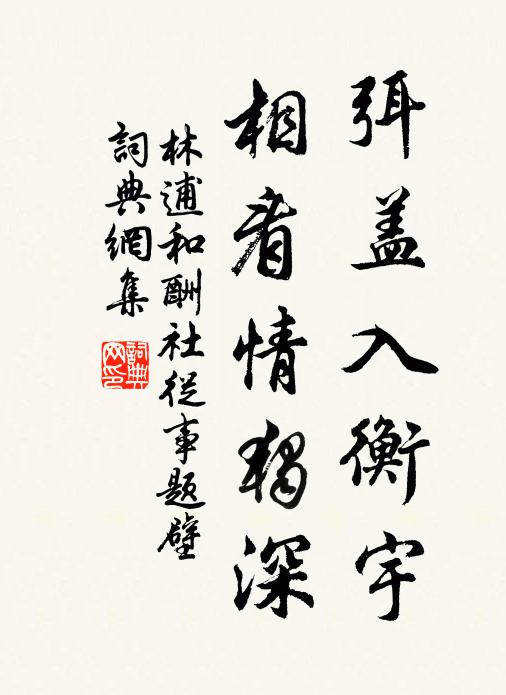 弭盖入衡宇
相看情独深
林逋和酬社從事題壁
詞典網集
詞典網印